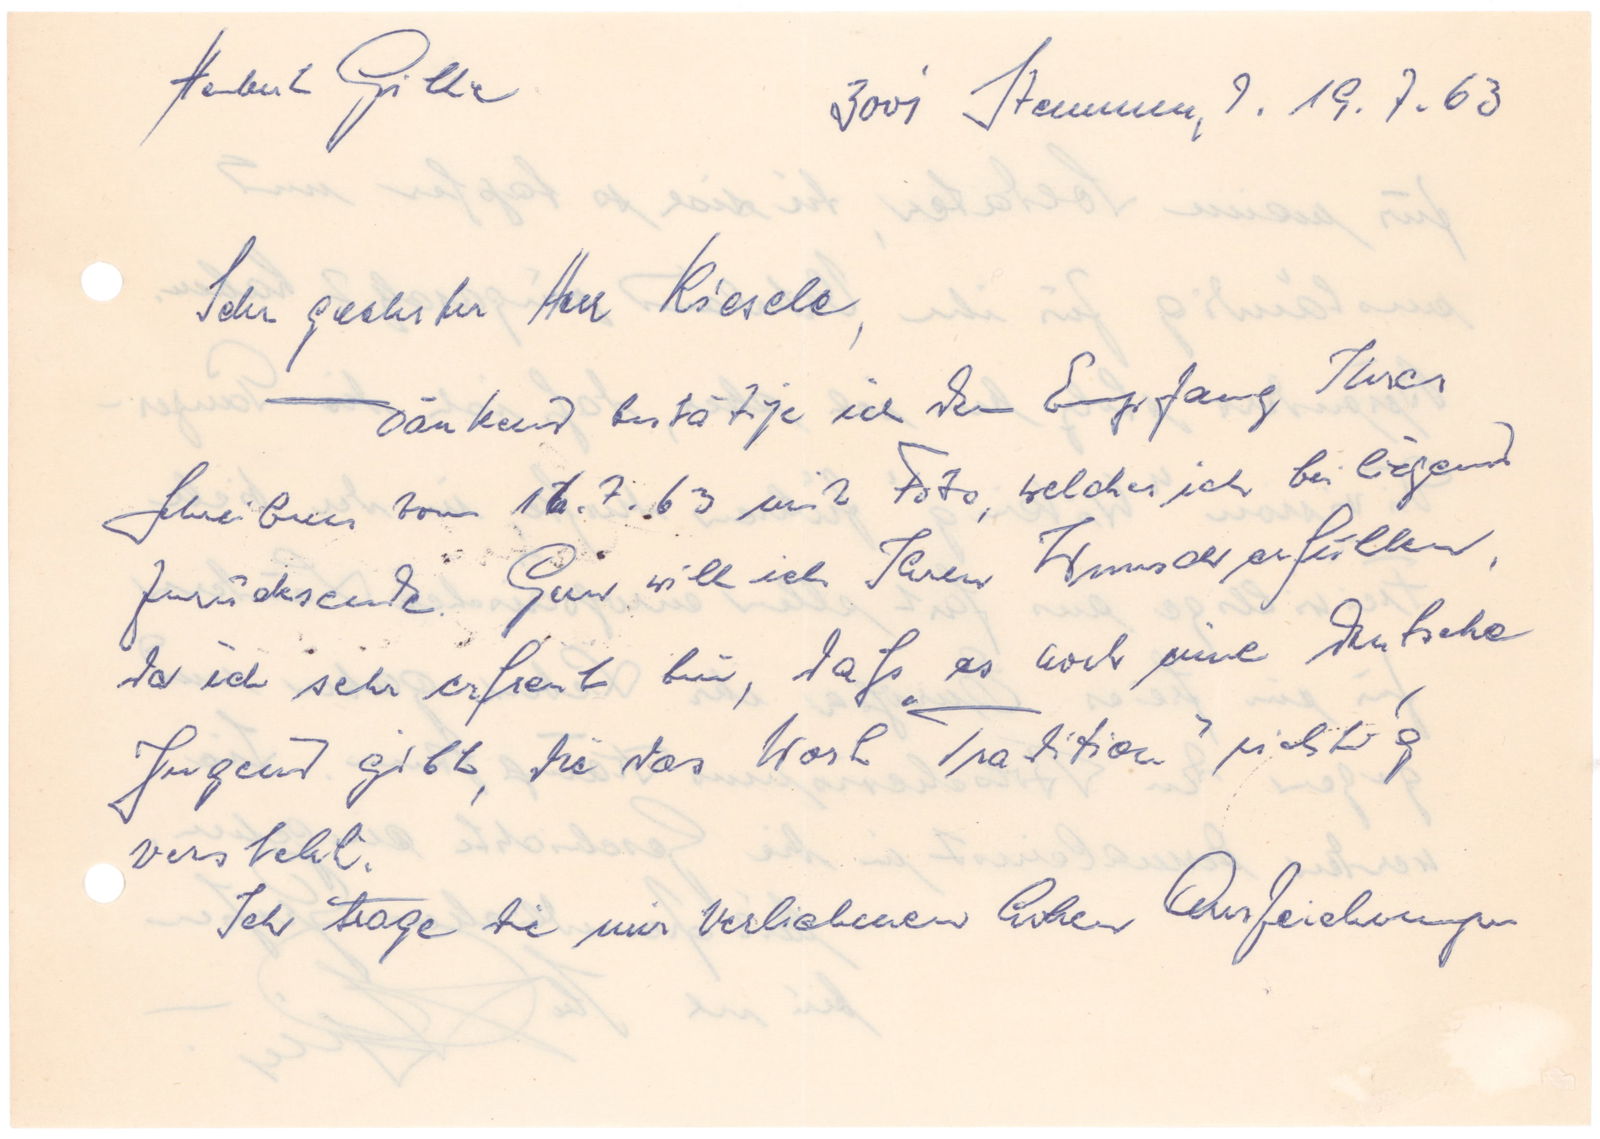 Herbert Gille
3001 Stemmen, d. 19.7.63
Sehr geehrter Herr Kiesele,
Dankend bestätige ich den Empfang Ihres
Schreibens vom 16.7.63 mit Foto, welches ich beiliegend
zurücksende. Gern will ich Ihren Wunsch erfüllen,
da ich sehr erfreut bin, daß es noch eine deutsche
Jugend gibt, die das Wort „Tradition" richtig
versteht.
Ich trage die mir verliehenen hohen Auszeichnungen